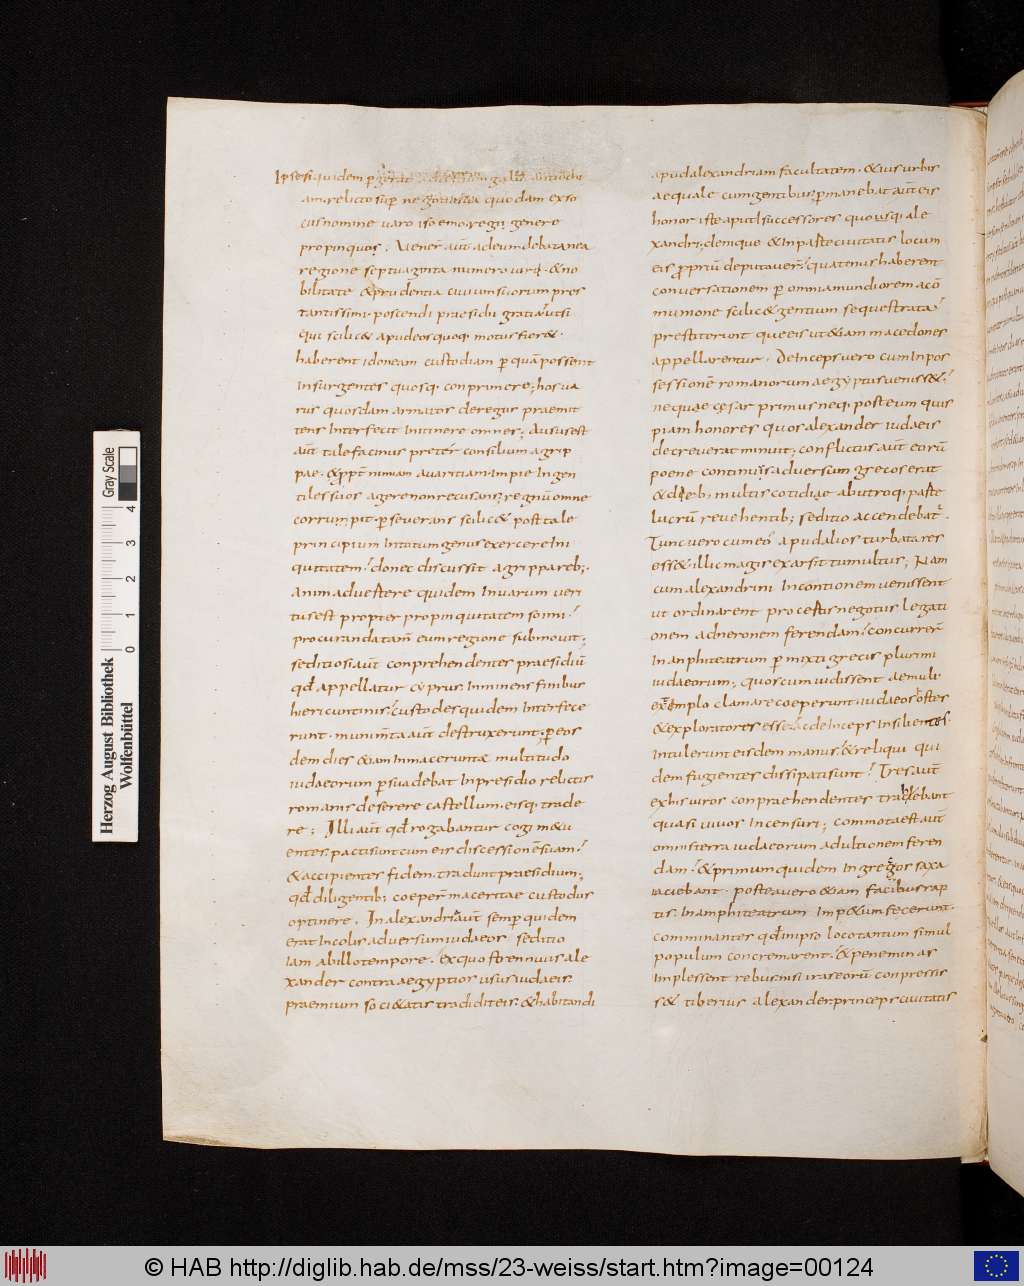 Ipse siquidem pgerat
am. relicto sup negotiatia quodam ex so
cus nomine uaro isoemo. regii genere
propinquos. Uener aut ad eum de batanea
regione septuaginta numero uiri. & no
bilitate & prudentia ciuium suorum pres
tantissimi. poscendi praesidii gratia. ut si
qui scilic& apud eos quoq; motus fier&.
haberent idoneam custodiam p quā possent
insurgentes quosq; conprimere; hos ua
rus quosdam armatos deregis praemit
tens interfecit in itinere omnes; Ausus est
aut tale facinus preter consilium agrip
pae. & ppt nimiam auaritiam impie in gen
tiles suos agere non recusans; regnū omne
corrumpit. pseuerans scilic& post tale
principium in totum genus exercere ini
quitatem. donec discussit agrippa reb;.
Animaduertere quidem in uarum ueri
tus est propter propinquitatem soimi.
procuranda tam eum regione submouit.
seditiosi aut conprehendentes praesidiū
qd appellatur cyprus. imminens finibus
hiericuntinis. custodes quidem interfece
runt. munimta aut destruxerunt. p eos
dem dies & iam in macerunte multitudo
iudaeorum psuadebat in presidio relictis
romanis deserere castellum. eisq; trade
re; Illi aut qd rogabantur cogi m&u
entes. pacti sunt cum eis discessionē suam.
& accipientes fidem. tradunt praesidium;
qd diligentib; coeper maceritae custodiis
optinere. In alexandria aut semp quidem
erat incolis aduersum iudaeos seditio
iam ab illo tempore. ex quo strennuis ale
xander contra aegyptios usus iudaeis.
praemium soci&atis tradidit eis. & habitandi
apud alexandriam facultatem. & ius urbis
aequale cum gentibus. pmanebat aut eis
honor iste aput successores quousq; ale
xandri; denique & in parte ciuitatis locum
eis propriū deputauer. quatenus haberent
conuersationem p omnia mundiorem a cō
munione scilic& gentium sequestrata.
prestiterunt que eis ut & iam macedones
appellarentur. Deinceps uero cum in pos
sessionē romanorum aegyptus uenisse&.
nequae cęsar primus neq; post eum quis
piam honores quos alexander iudaeis
decreuerat minuit; conflictus aut eorū
poene continuus aduersum grecos erat
& dieb; multis cotidiae ab utroq; parte
lucrū reuehentib; seditio accendebat.
Tunc uero cum eo apud alios turbata res
ess& illic magis exarsit tumultus; Nam
cum alexandrini in contionem uenissent
ut ordinarent pro certis negotiis legati
onem ad neronem ferendam. concurrer
in anphiteatrum pmixti grecis plurimi
iudaeorum; quos cum uidissent aemuli
exemplo clamare coeperunt iudaeos ostes
& exploratores esse. Ac deinceps insilientes
intulerunt eisdem manus. & reliqui qui
dem fugientes dissipati sunt. Tres aut
ex his uiros conpraehendentes trahebant
quasi uiuos incensuri; commota est aut
omnis terra iudaeorum ad ultionem feren
dam. & primum quidem in gregos saxa
iaciebant. postea uero & iam facibus rap
tis. in amphiteatrum imp&um fecerunt.
comminantes qd in ipso loco tantum simul
populum concremarent. & pene minas
implessent rebus. nisi iras eorū conpressis
s& tiberius alexander princeps ciuitatis
Herzog August Bibliothek
Wolfenbüttel
0 1 2 3 4
Gray Scale
© HAB http://diglib.hab.de/mss/23-weiss/start.htm?image=00124